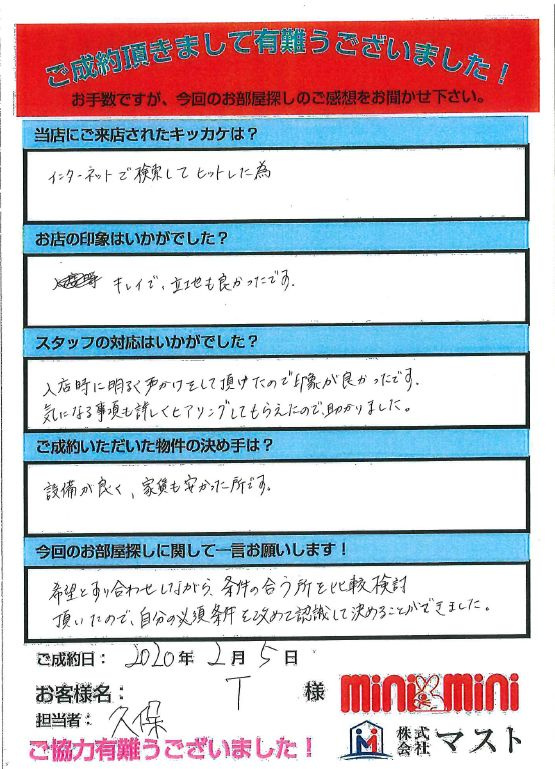 ご成約頂きまして有難うございました！
お手数ですが、今回のお部屋探しのご感想をお聞かせ下さい。
当店にご来店されたキッカケは？
インターネットで検索してヒットした為
お店の印象はいかがでした？
キレイで、立地も良かったです。
スタッフの対応はいかがでした？
入店時に明るく声かけをして頂けたので印象が良かったです。
気になる事項も詳しくヒアリングしてもらえたので、助かりました。
ご成約いただいた物件の決め手は？
設備が良く、家賃も安かった所です。
今回のお部屋探しに関して一言お願いします！
希望とすり合わせしながら、条件の合う所を比較検討
頂いたので、自分の必須条件を改めて認識して決めることができました。
ご成約日： 2020年 2月 5日
お客様名： T 様
担当者： 久保
ご協力有難うございました！
mini mini
株式会社 マスト